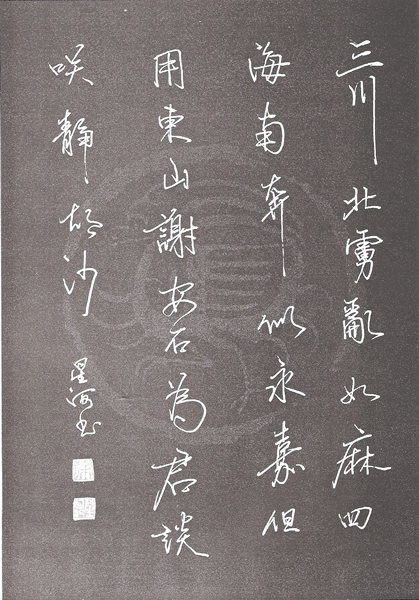 三川北虜亂如麻四
海南奔似永嘉但
用東山謝安石為君談
咲靜胡沙
星河書